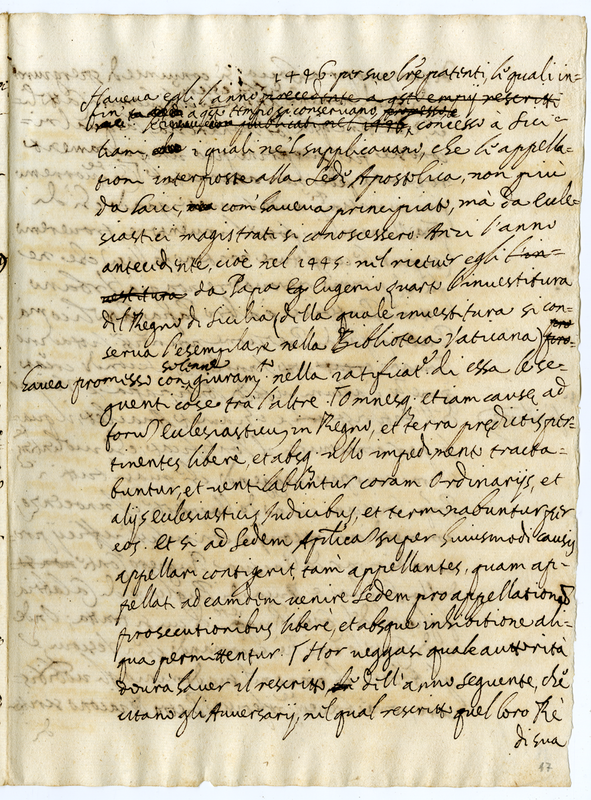 1446 per sue lr̃e patenti, le quali in-
Haveva egli l'anno precedente a qsti tempij rescritti
fin a qsto tempo si conservano,
concesso à Sici-
liani, i quali nel supplicavano, che le appella-
tioni interposte alla Sede Apostolica, non più
da laici, com'haveva principiato, mà da Eccle-
siastici magistrati si conoscessero. Anzi l'anno
antecedente, cioè nel 1445. nel ricever egli l'in-
vestitura da Papa Eugenio quarto l'investitura
del Regno di Sicilia (della quale investitura si con-
serva l'esemplare nella Biblioteca Vaticana)
havea promesso con solenne giuramto. nella ratificate. di essa le se-
guenti cose tra l'altre. Omnesq. etiam causę ad
forũ Ecclesiasticũ in Regno, et terra prędictis per-
tinentes libere, et absq. ullo impedimento tracta-
buntur, et ventilabuntur coram Ordinarijs, et
alijs Ecclesiasticis Judicibus, et terminabuntur per
eos. Et si ad Sedem Aplica super huiusmodi causis
appellari contigerit, tam appellantes, quam ap-
pellati ad eamdem venire Sedem pro appellationũ
prosecutionibus liberè, et absque inhibitione ali-
qua permittentur. Hor veggasi quale autorità
dovrà haver il rescritto dell'anno seguente, che
citano gli Avversarij, nel qual rescritto quel loro Rè
di sua
17